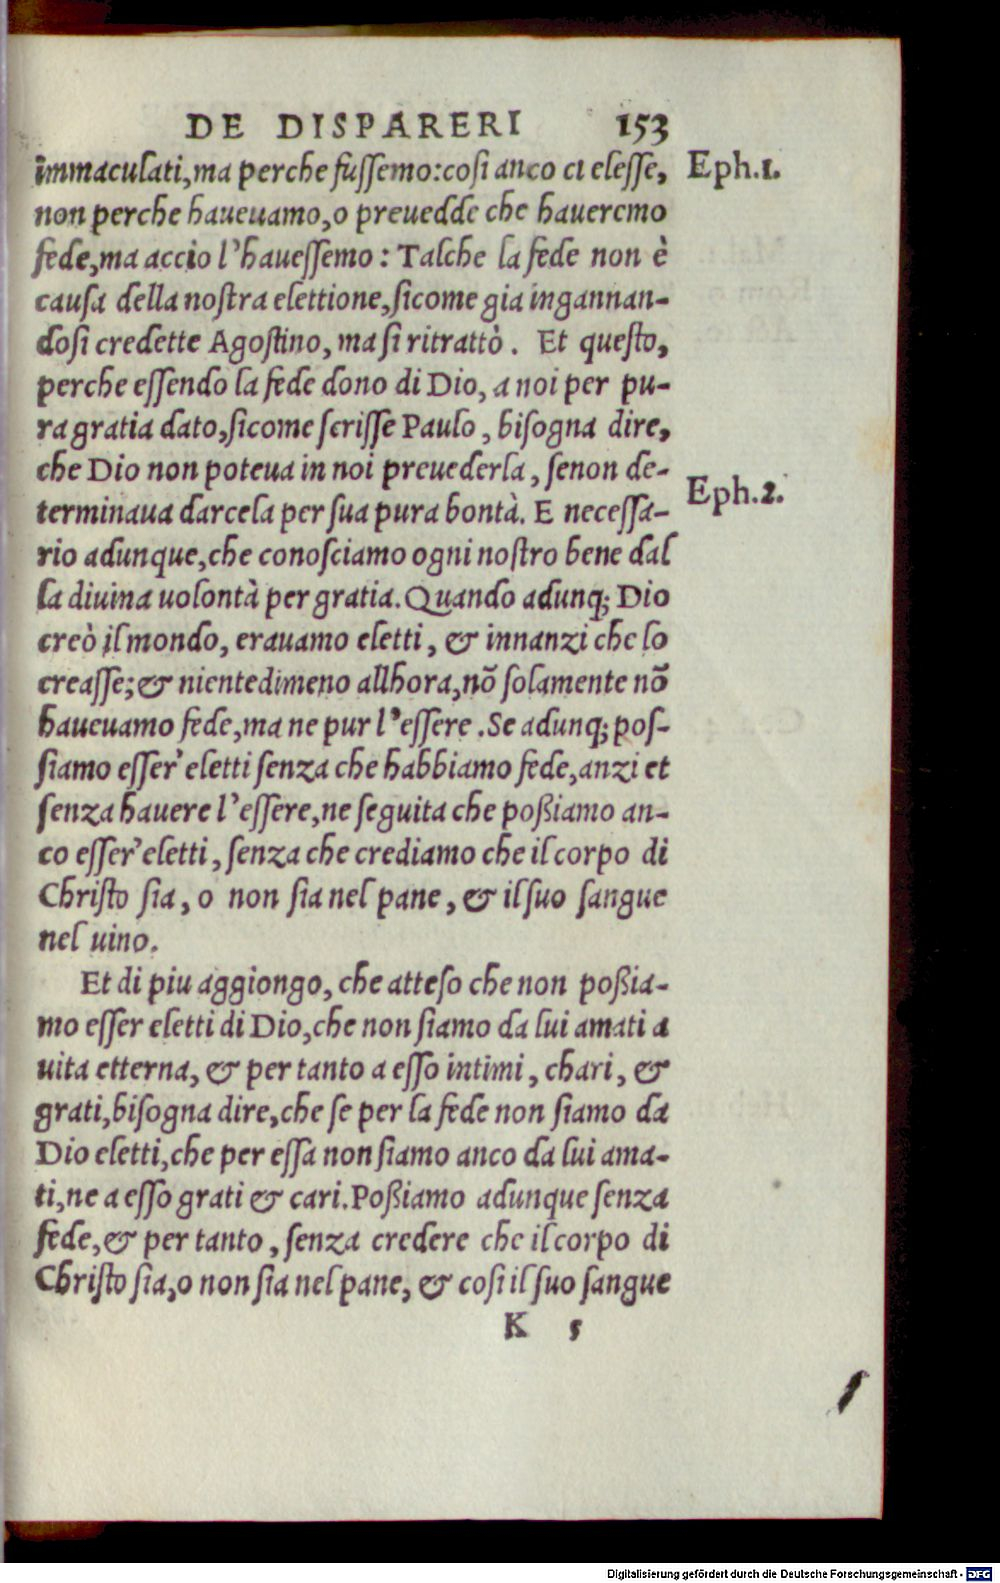 DE DISPARERI 153
immaculati,ma perche fussemo:cosi anco ci elesse, Eph.1.
non perche haueuamo,o preuedde che haueremo
fede,ma accio l'hauessemo: Talche la fede non è
causa della nostra elettione,sicome gia ingannan-
dosi credette Agostino, ma si ritrattò. Et questo,
perche essendo la fede dono di Dio, a noi per pu-
ra gratia dato,sicome scrisse Paulo, bisogna dire,
che Dio non poteua in noi preuederla, senon de- Eph.2.
terminaua darcela per sua pura bontà. E necessa-
rio adunque,che conosciamo ogni nostro bene dal
la diuina uolontà per gratia. Quando adunq; Dio
creò il mondo, erauamo eletti, & innanzi che lo
creasse;& nientedimeno allhora,nõ solamente nõ
haueuamo fede,ma ne pur l'essere. Se adunq; pos-
siamo esser' eletti senza che habbiamo fede,anzi et
senza hauere l'essere,ne seguita che poßiamo an-
co esser' eletti, senza che crediamo che il corpo di
Christo sia, o non sia nel pane, & il suo sangue
nel uino.
Et di piu aggiongo, che atteso che non poßia-
mo esser eletti di Dio,che non siamo da lui amati a
uita etterna, & per tanto a esso intimi, chari, &
grati,bisogna dire,che se per la fede non siamo da
Dio eletti,che per essa non siamo anco da lui ama-
ti,ne a esso grati & cari.Poßiamo adunque senza
fede,& per tanto, senza credere che il corpo di
Christo sia,o non sia nel pane, & cosi il suo sangue
K 5
Digitalisierung gefördert durch die Deutsche Forschungsgemeinschaft - DFG